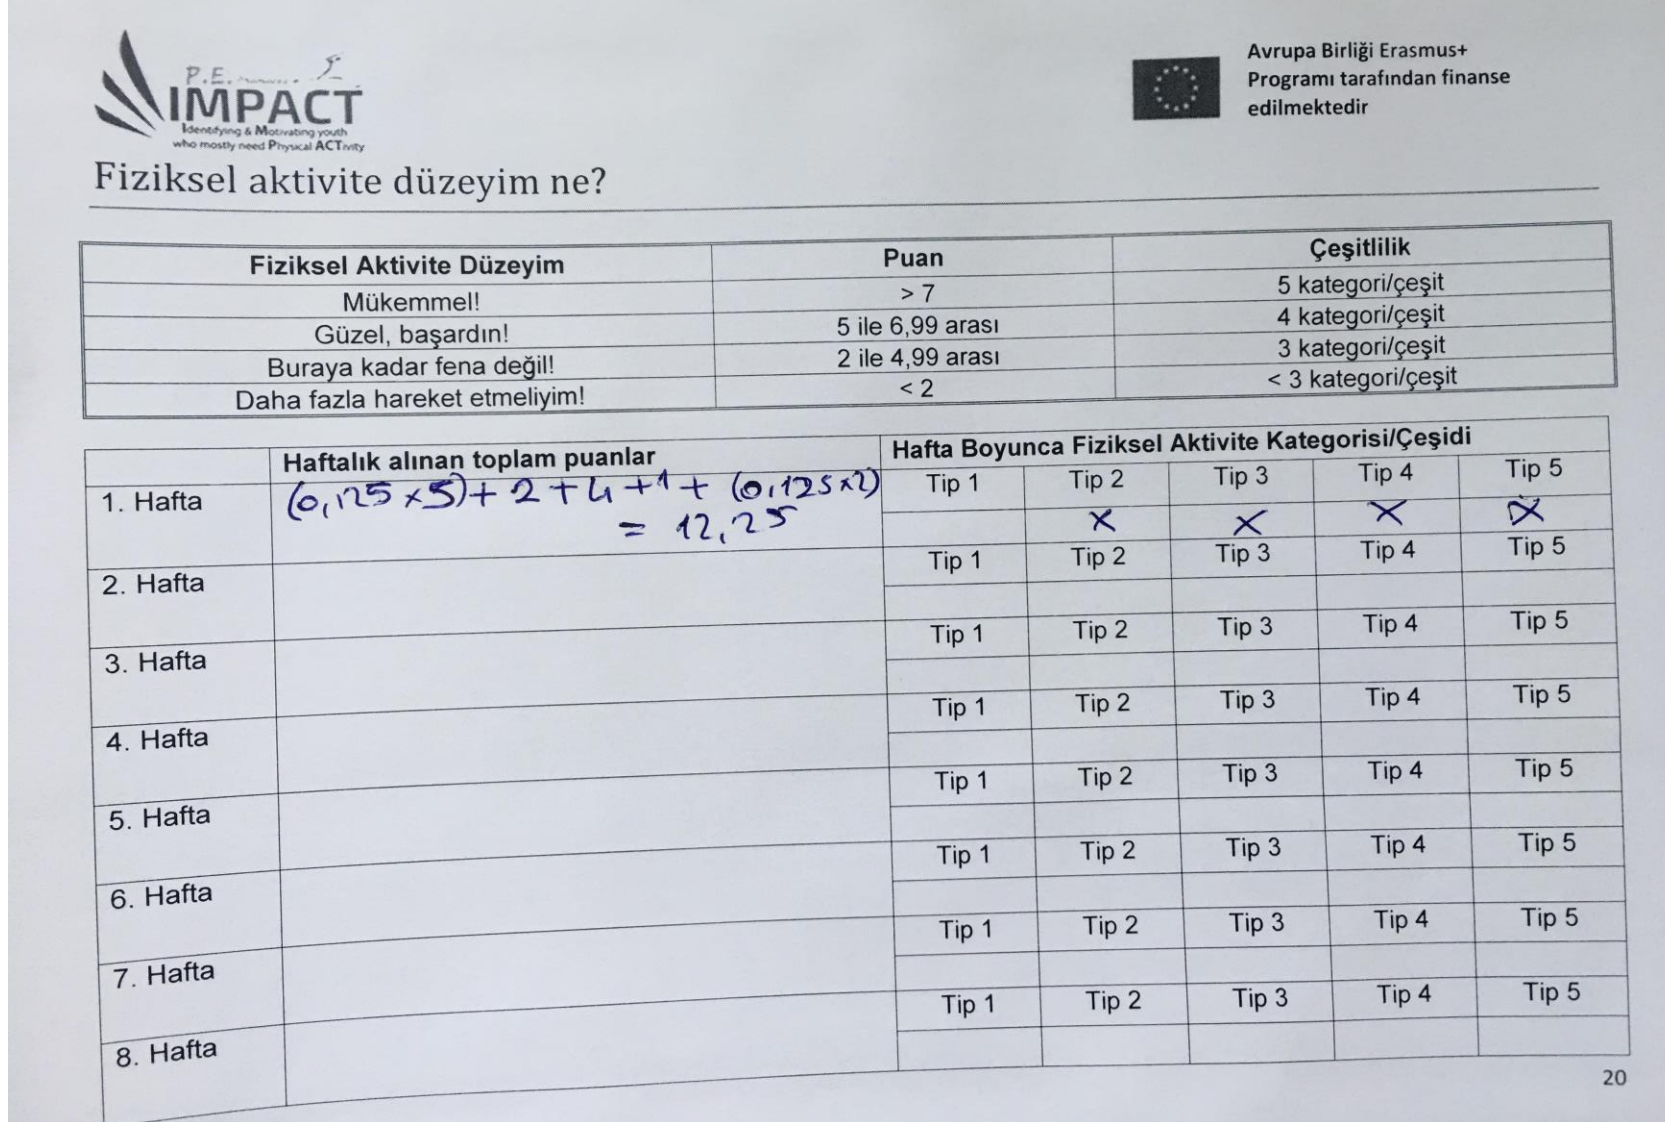 P.E.
IMPACT
Identifying & Motivating youth
who mostly need Physical ACTivity
Avrupa Birliği Erasmus+
Programı tarafından finanse
edilmektedir
Fiziksel aktivite düzeyim ne?
Fiziksel Aktivite Düzeyim Puan Çeşitlilik
Mükemmel! > 7 5 kategori/çeşit
Güzel, başardın! 5 ile 6,99 arası 4 kategori/çeşit
Buraya kadar fena değil! 2 ile 4,99 arası 3 kategori/çeşit
Daha fazla hareket etmeliyim! < 2 < 3 kategori/çeşit
Haftalık alınan toplam puanlar Hafta Boyunca Fiziksel Aktivite Kategorisi/Çeşidi
1. Hafta (0,125 x 5) + 2 + 4 + 1 + (0,125 x 2) Tip 1 Tip 2 Tip 3 Tip 4 Tip 5
= 12,25 X X X X
2. Hafta Tip 1 Tip 2 Tip 3 Tip 4 Tip 5
3. Hafta Tip 1 Tip 2 Tip 3 Tip 4 Tip 5
4. Hafta Tip 1 Tip 2 Tip 3 Tip 4 Tip 5
5. Hafta Tip 1 Tip 2 Tip 3 Tip 4 Tip 5
6. Hafta Tip 1 Tip 2 Tip 3 Tip 4 Tip 5
7. Hafta Tip 1 Tip 2 Tip 3 Tip 4 Tip 5
8. Hafta Tip 1 Tip 2 Tip 3 Tip 4 Tip 5
20